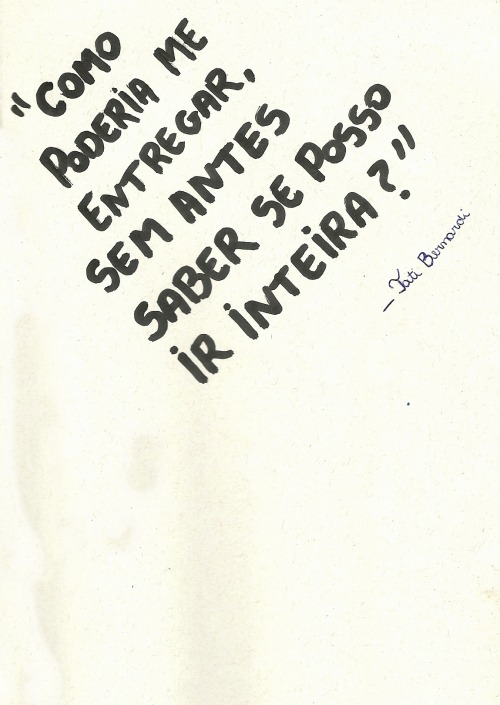 "COMO
PODERIA ME
ENTREGAR,
SEM ANTES
SABER SE POSSO
IR INTEIRA?"
— Tati Bernardi